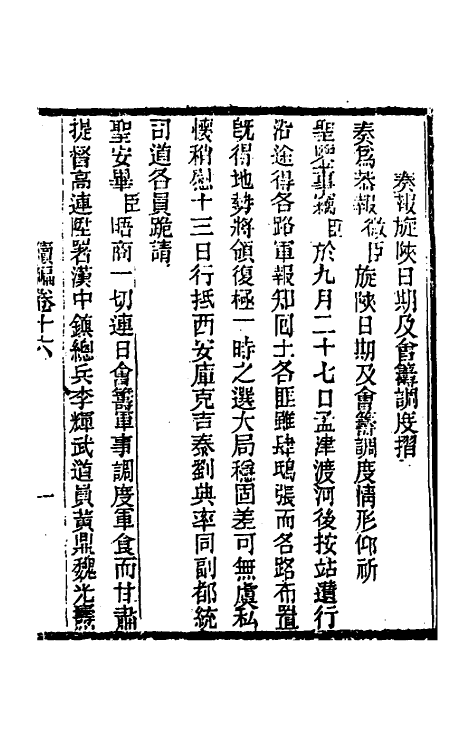 奏報旋陝日期及會籌調度摺
奏爲恭報微臣旋陝日期及會籌調度情形仰祈
聖鑒事竊臣於九月二十七日孟津渡河後按站遄行
沿途得各路軍報知回土各匪雖肆鴟張而各路布置
旣得地勢將領復極一時之選大局穩固差可無虞私
懷稍慰十三日行抵西安庫克吉泰劉典率同副都統
司道各員跪請
聖安畢臣晤商一切連日會籌軍事調度軍食而甘肅
提督高連陞署漢中鎮總兵李輝武道員黃鼎魏光燾
續編卷十六
一